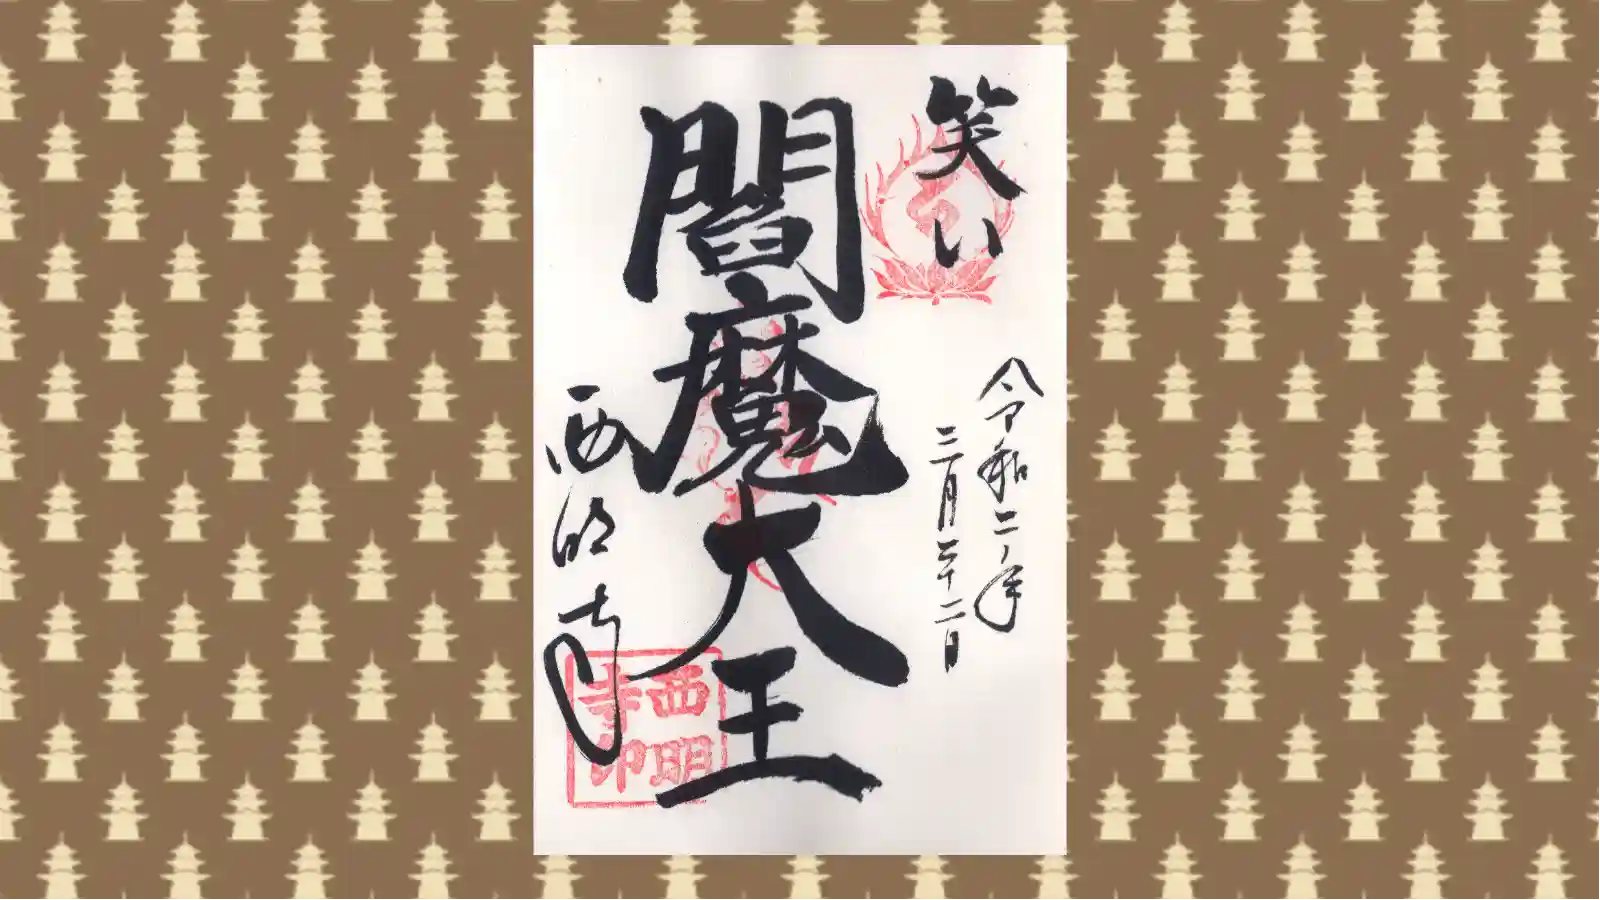 笑い
令和二年
三月二十二日
閻魔大王
西明寺
西明
寺印